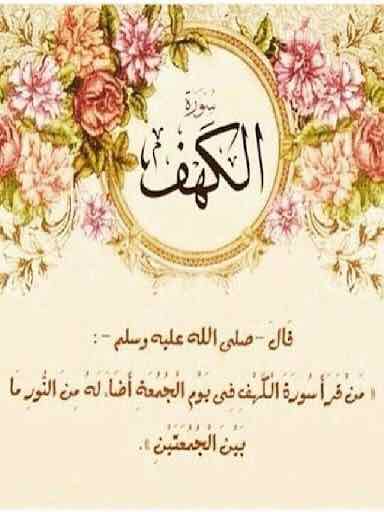 سُورَة
الكَهْف
قَالَ -صلى الله عليه وسلم -:
« مَنْ قَرَأَ سُورَةَ الْكَهْفِ فِي يَوْمِ الْجُمُعَةِ أَضَاءَ لَهُ مِنَ النُّورِ مَا
بَيْنَ الْجُمُعَتَيْنِ ».